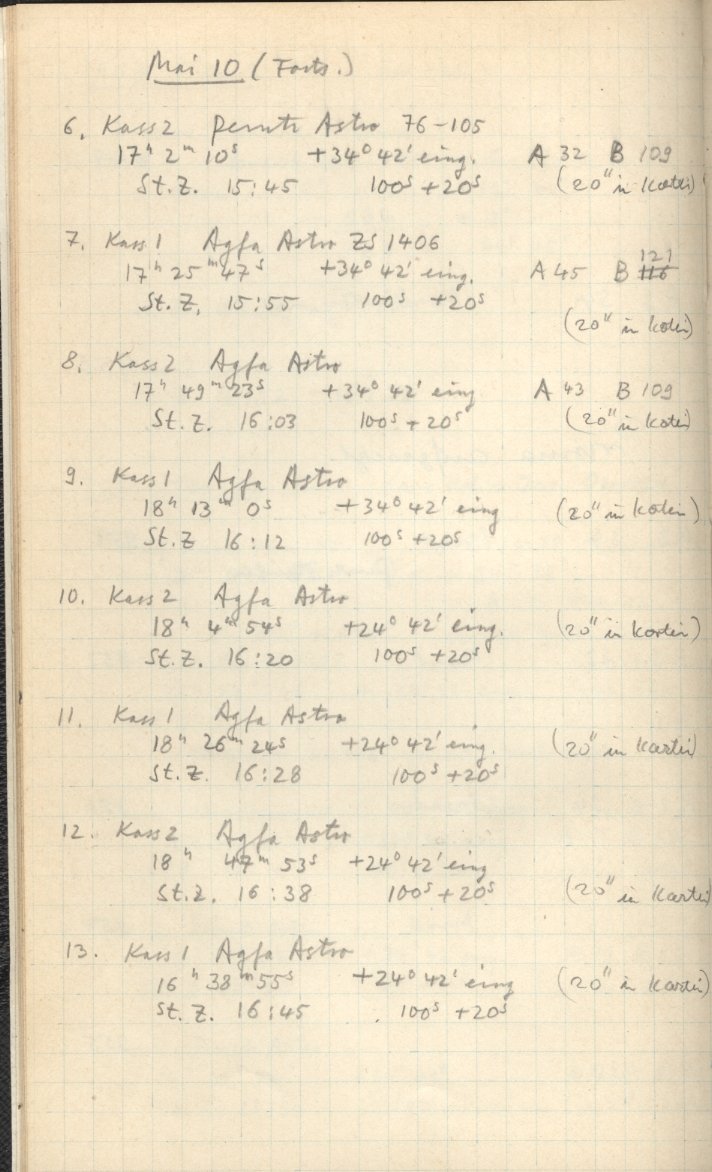 Mai 10 (Forts.)
6. Kass 2 Perutz Astro 76-105
17ʰ 2ᵐ 10ˢ +34° 42' eing. A 32 B 109
St.Z. 15:45 100ˢ +20ˢ (20" in Kartei)
7. Kass 1 Agfa Astro ZS 1406
121
17ʰ 25ᵐ 47ˢ +34° 42' eing. A 45 B 116
St. Z. 15:55 100ˢ +20ˢ
(20" in Kartei)
8. Kass 2 Agfa Astro
17ʰ 49ᵐ 23ˢ +34° 42' eing A 43 B 109
St. Z. 16:03 100ˢ +20ˢ (20" in Kartei)
9. Kass 1 Agfa Astro
18ʰ 13ᵐ 0ˢ +34° 42' eing (20" in Kartei)
St. Z 16:12 100ˢ +20ˢ
10. Kass 2 Agfa Astro
18ʰ 4ᵐ 54ˢ +24° 42' eing. (20" in Kartei)
St. Z. 16:20 100ˢ +20ˢ
11. Kass 1 Agfa Astro
18ʰ 26ᵐ 24ˢ +24° 42' eing. (20" in Kartei)
St. Z. 16:28 100ˢ +20ˢ
12. Kass 2 Agfa Astro
18ʰ 47ᵐ 53ˢ +24° 42' eing
St. Z. 16:38 100ˢ +20ˢ (20" in Kartei)
13. Kass 1 Agfa Astro
16ʰ 38ᵐ 55ˢ +24° 42' eing (20" in Kartei)
St. Z. 16:45 100ˢ +20ˢ